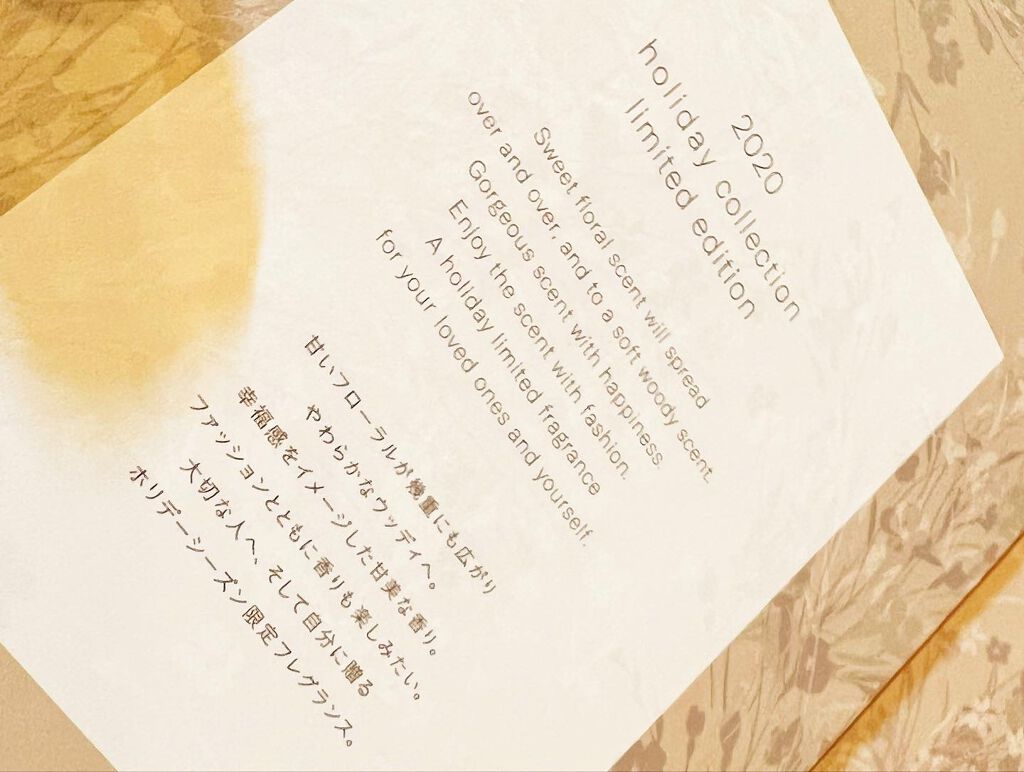 2020
holiday collection
limited edition
Sweet floral scent will spread
over and over, and to a soft woody scent.
Gorgeous scent with happiness.
Enjoy the scent with fashion.
A holiday limited fragrance
for your loved ones and yourself.
甘いフローラルが幾重にも広がり
やわらかなウッディへ。
幸福感をイメージした甘美な香り。
ファッションとともに香りも楽しみたい。
大切な人へ、そして自分に贈る
ホリデーシーズン限定フレグランス。